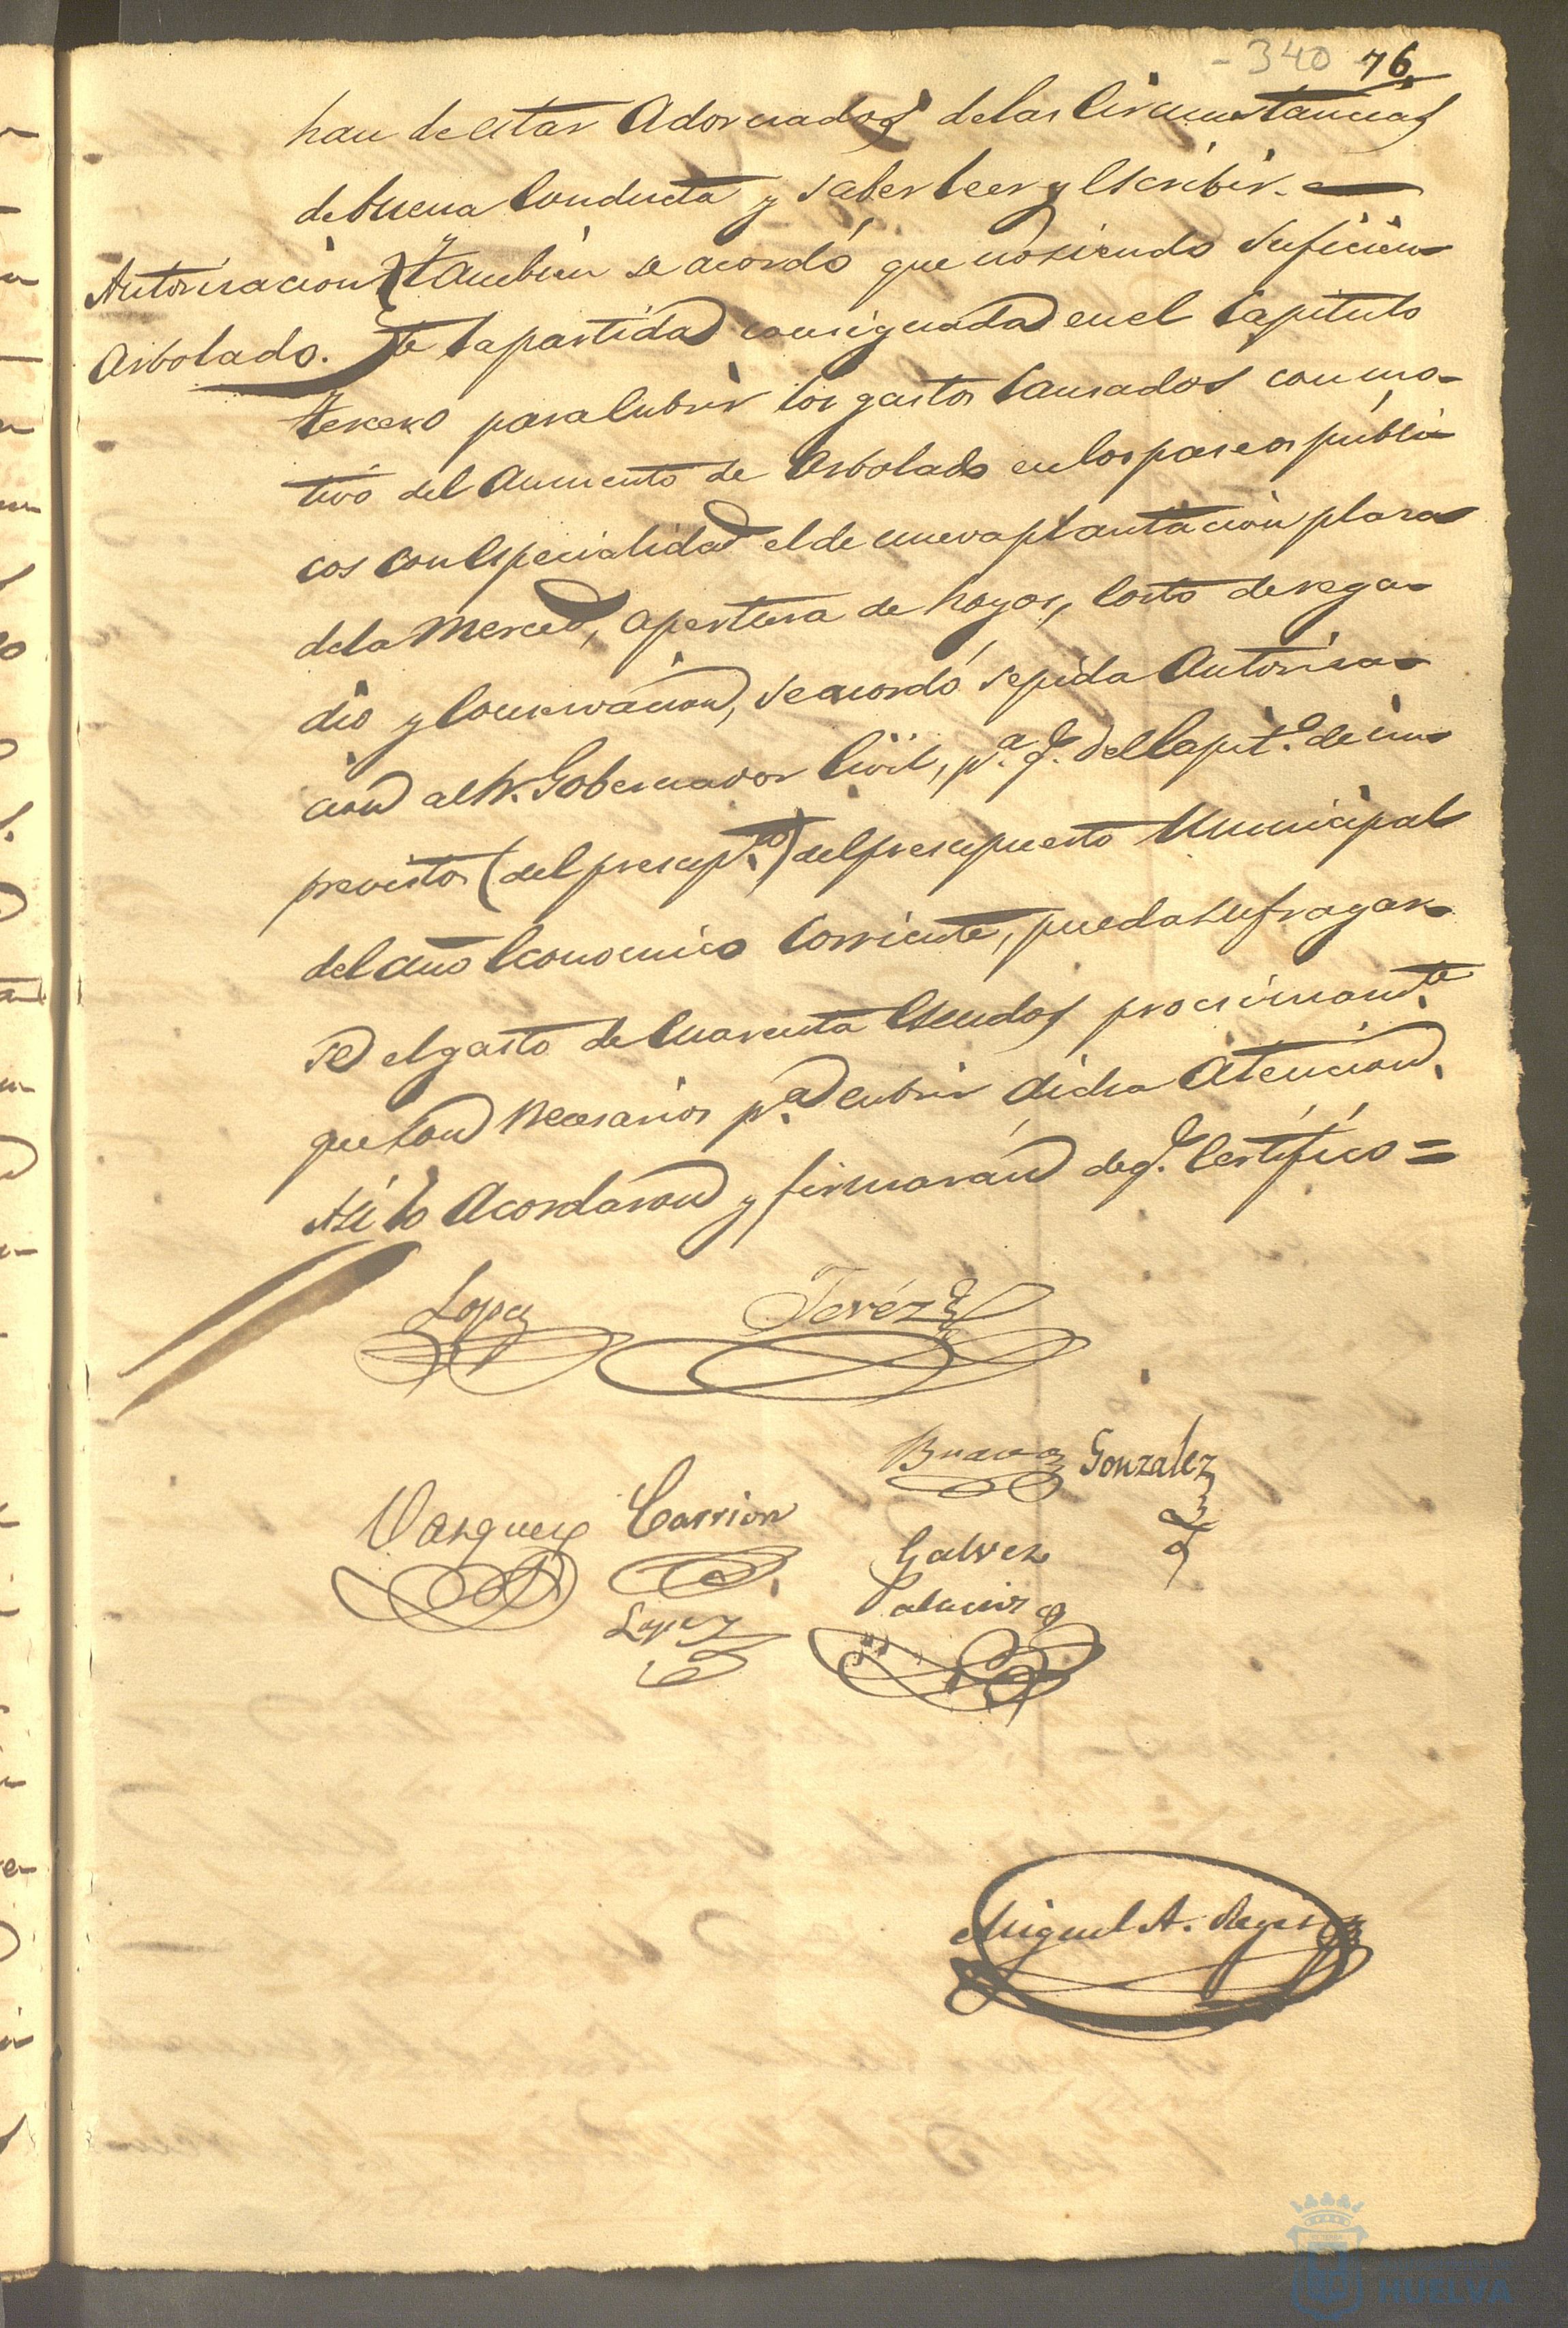 - 340 76
han de estar Adornados de las Circunstancias
de buena Conducta y saber leer y Escribir.
Autorisacion
Arbolado.
Y tambien se acordó que no siendo suficien-
te la partida consignada en el Capitulo
tercero para Cubrir los gastos Causados con mo-
tivo del Aumento de Arbolado en los paseos públi-
cos con Especialidad el de nueva plantacion plaza
de la Merced, apertura de hoyos, Costo de rega-
dio y Conservacion, se acordó se pida Autorisa-
cion al Sr. Gobernador Civil, p.ª q.e del Capit.º de im-
previstos (del presup.to) del presupuesto Municipal
del año Economico Corriente, pueda sufragar-
se el gasto de Cuarenta Escudos procsimam.te
que son Necesarios p.ª cubrir dicha Atencion.
Asi lo Acordaron y firmarán de q.e Certifico =
Lopez
Jeréz
Bravo
Gonzalez
Vazquez
Carrion
Galvez
Palacios
Lopez
Miguel A. Reyes
HUELVA